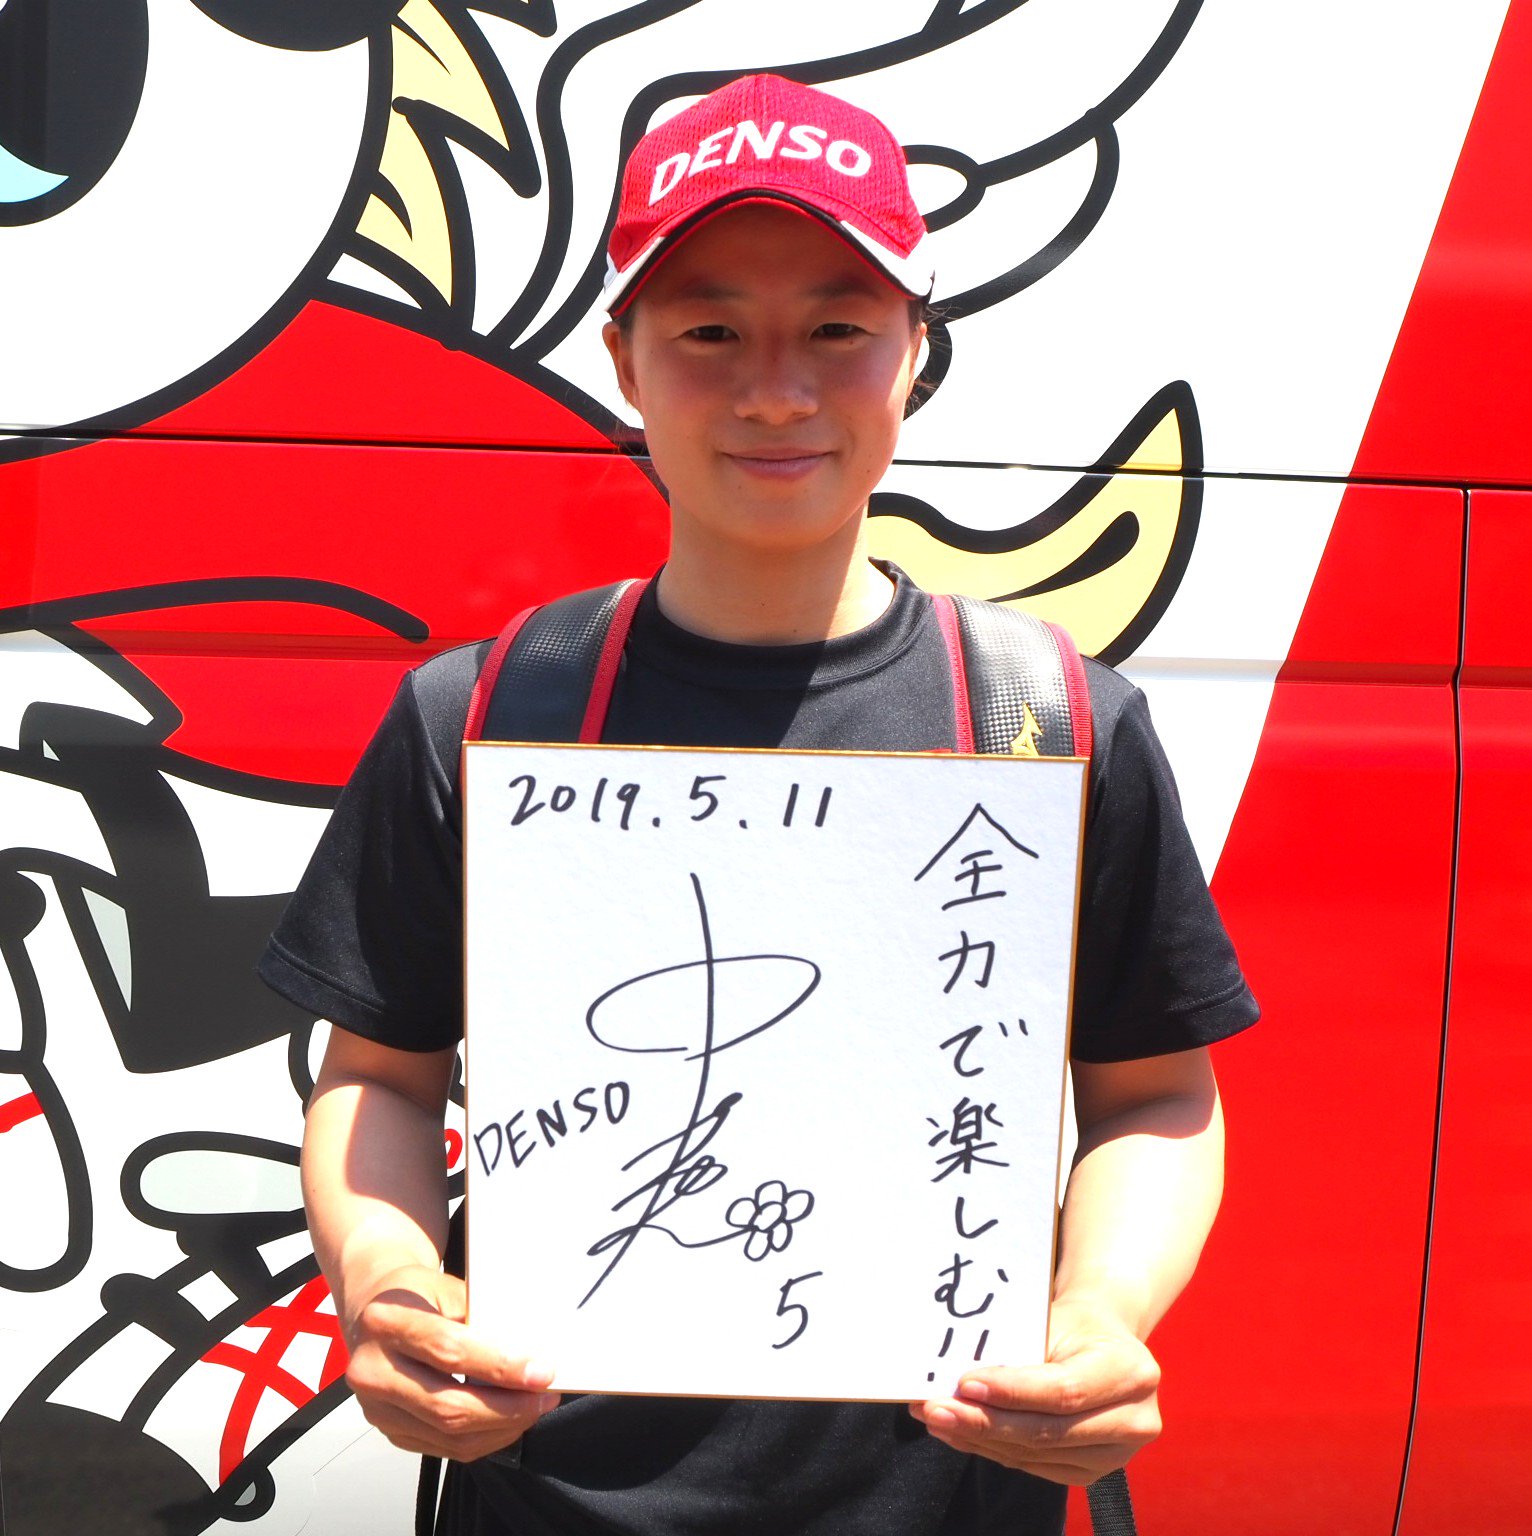 DENSO
2019.5.11
全力で楽しむ!!
DENSO
5